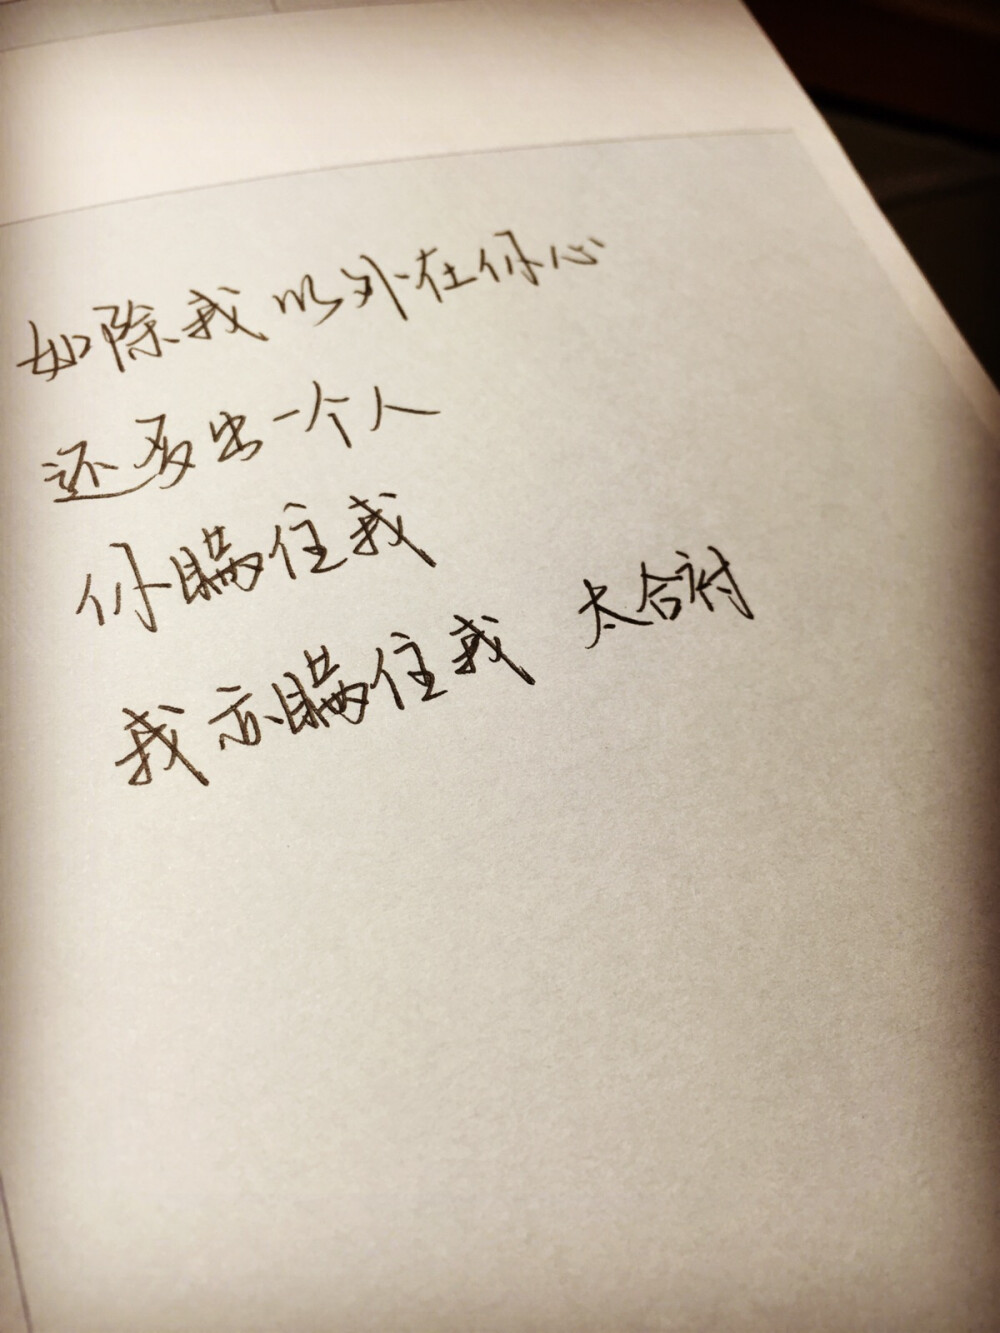 如除我以外在你心
还多出一个人
你瞒住我
我亦瞒住我 太合衬